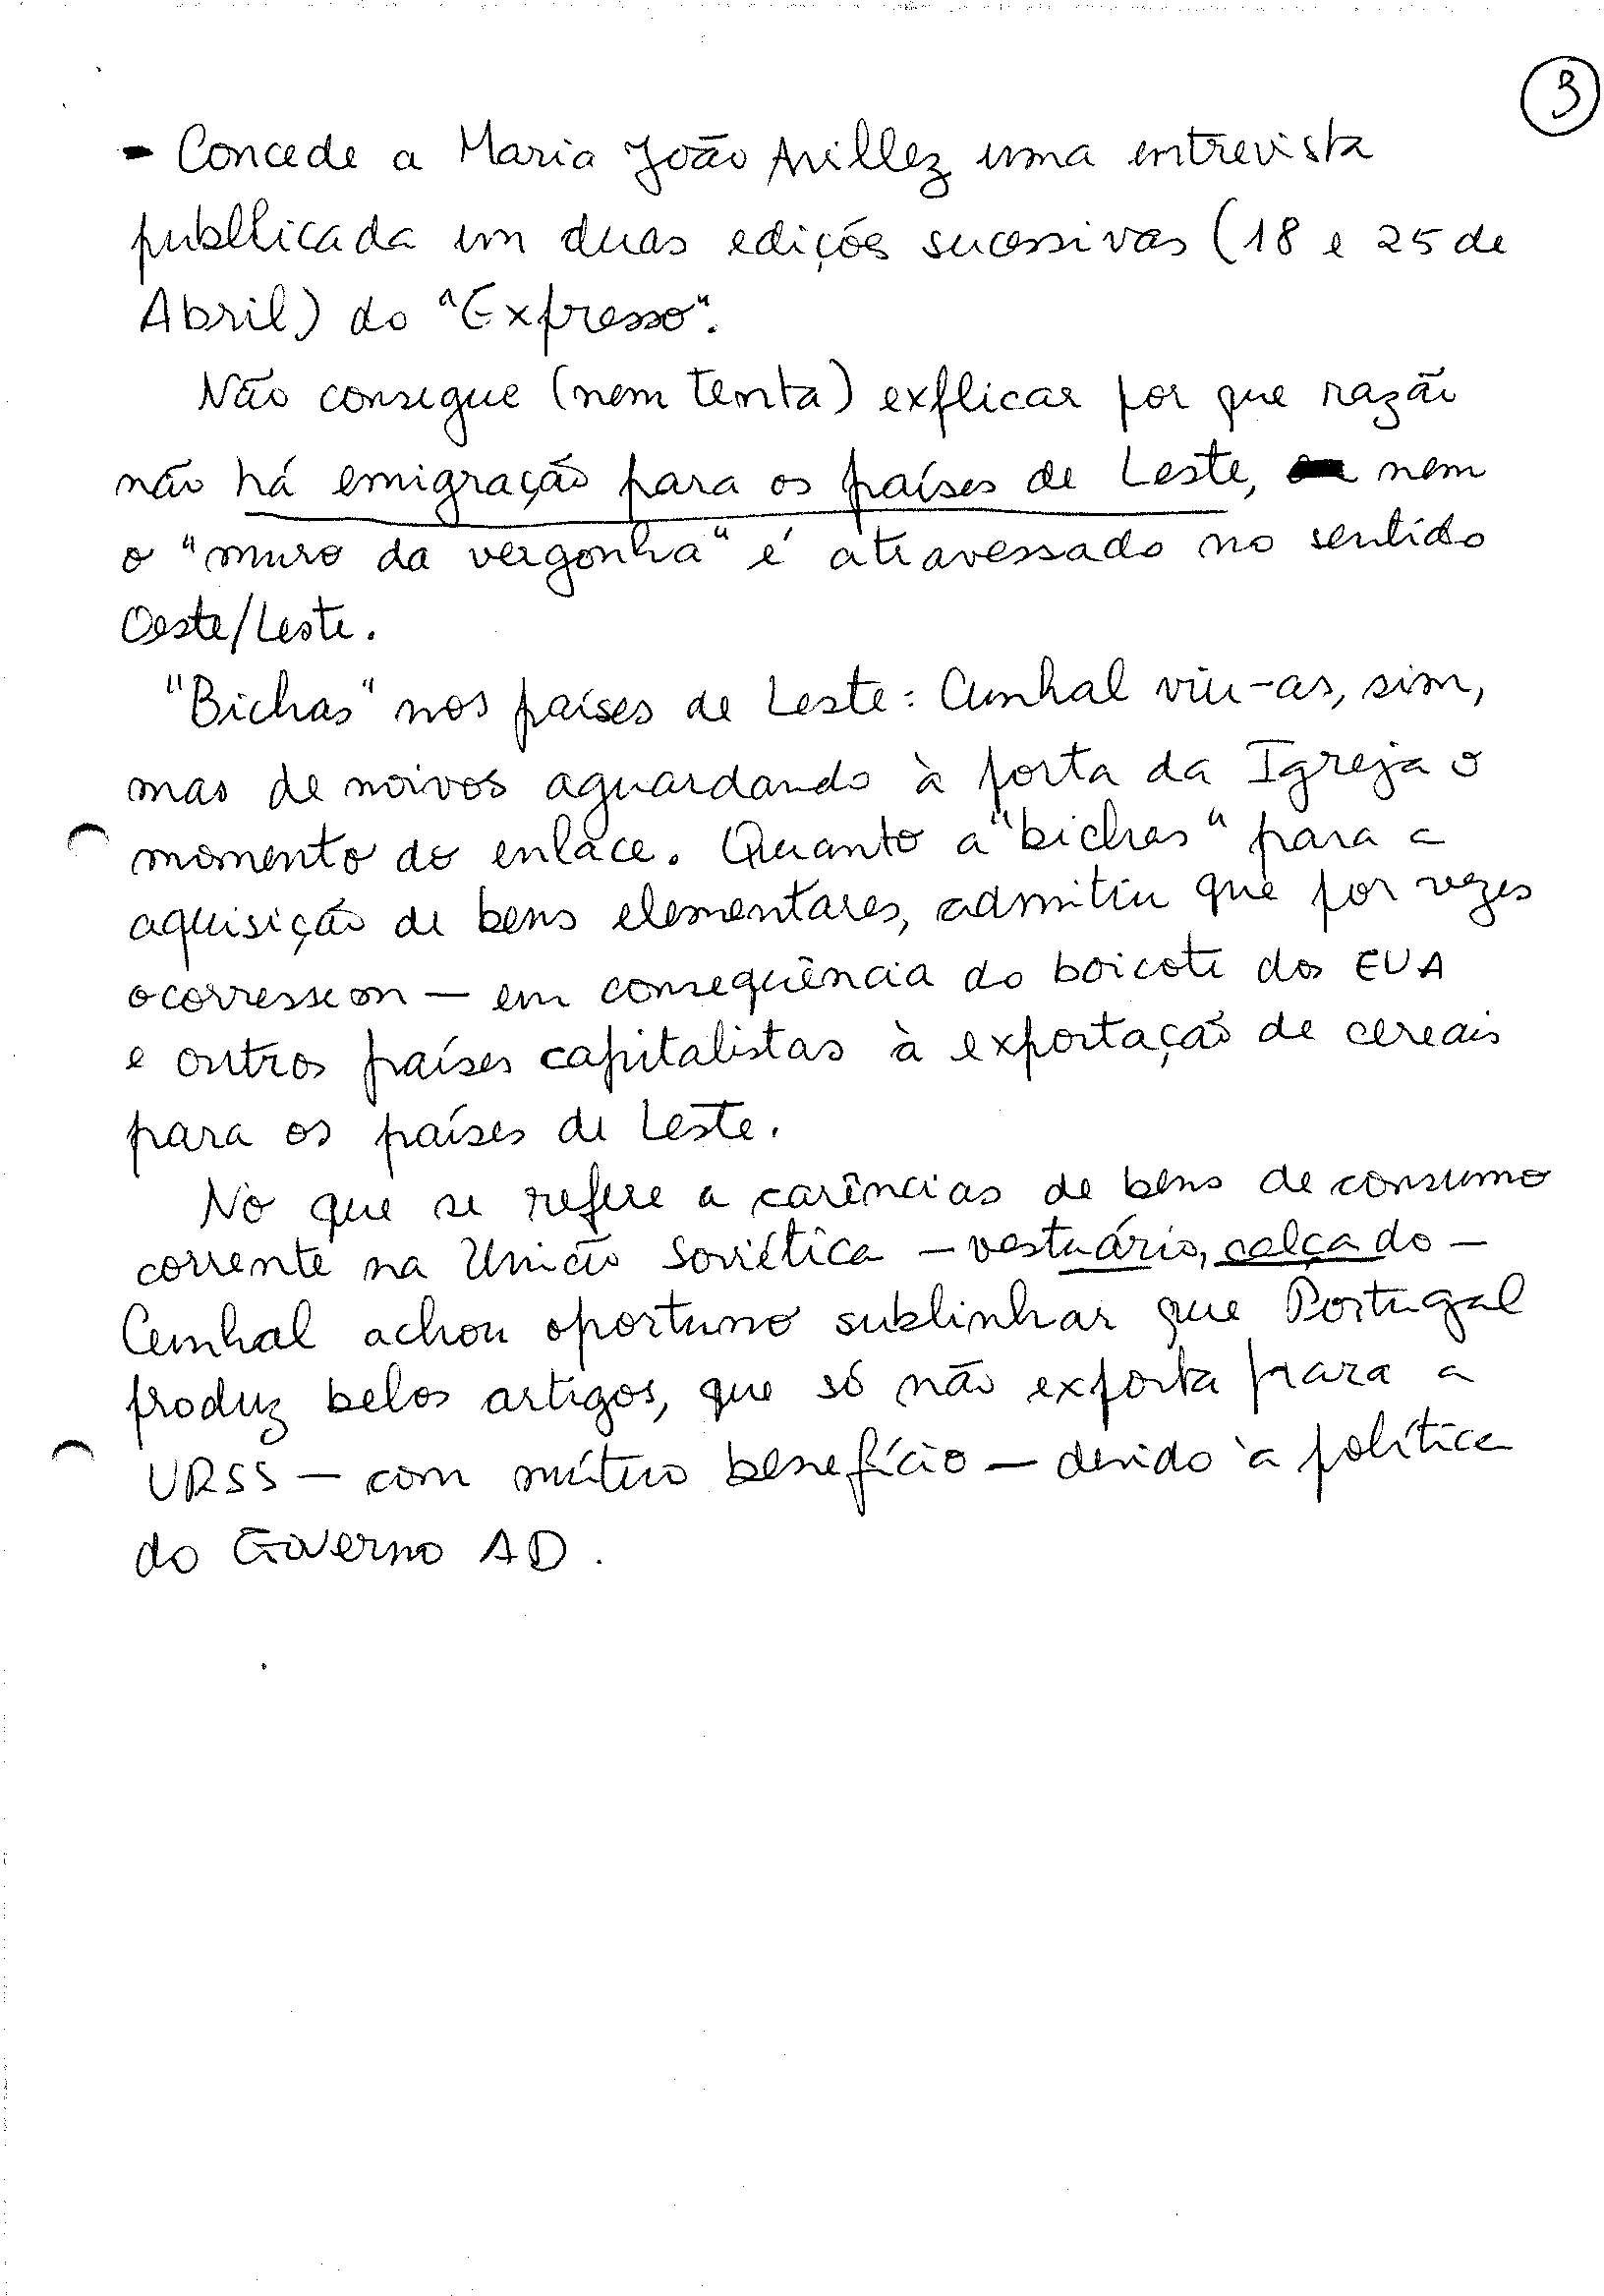 3
- Concede a Maria João Avillez uma entrevista
publlicada em duas edições sucessivas (18 e 25 de
Abril) do "Expresso".
Não consegue (nem tenta) explicar por que razão
não há emigração para os países de Leste, nem
o "muro da vergonha" é atravessado no sentido
Oeste/Leste.
"Bichas" nos países de Leste: Cunhal viu-as, sim,
mas de noivos aguardando à porta da Igreja o
momento do enlace. Quanto a "bichas" para a
aquisição de bens elementares, admitiu que por vezes
ocorressem - em conseqüência do boicote dos EUA
e outros países capitalistas à exportação de cereais
para os países de Leste.
No que se refere a carências de bens de consumo
corrente na União Soviética - vestuário, calçado -
Cunhal achou oportuno sublinhar que Portugal
produz belos artigos, que só não exporta para a
URSS - com mútuo benefício - devido à política
do Governo AD.